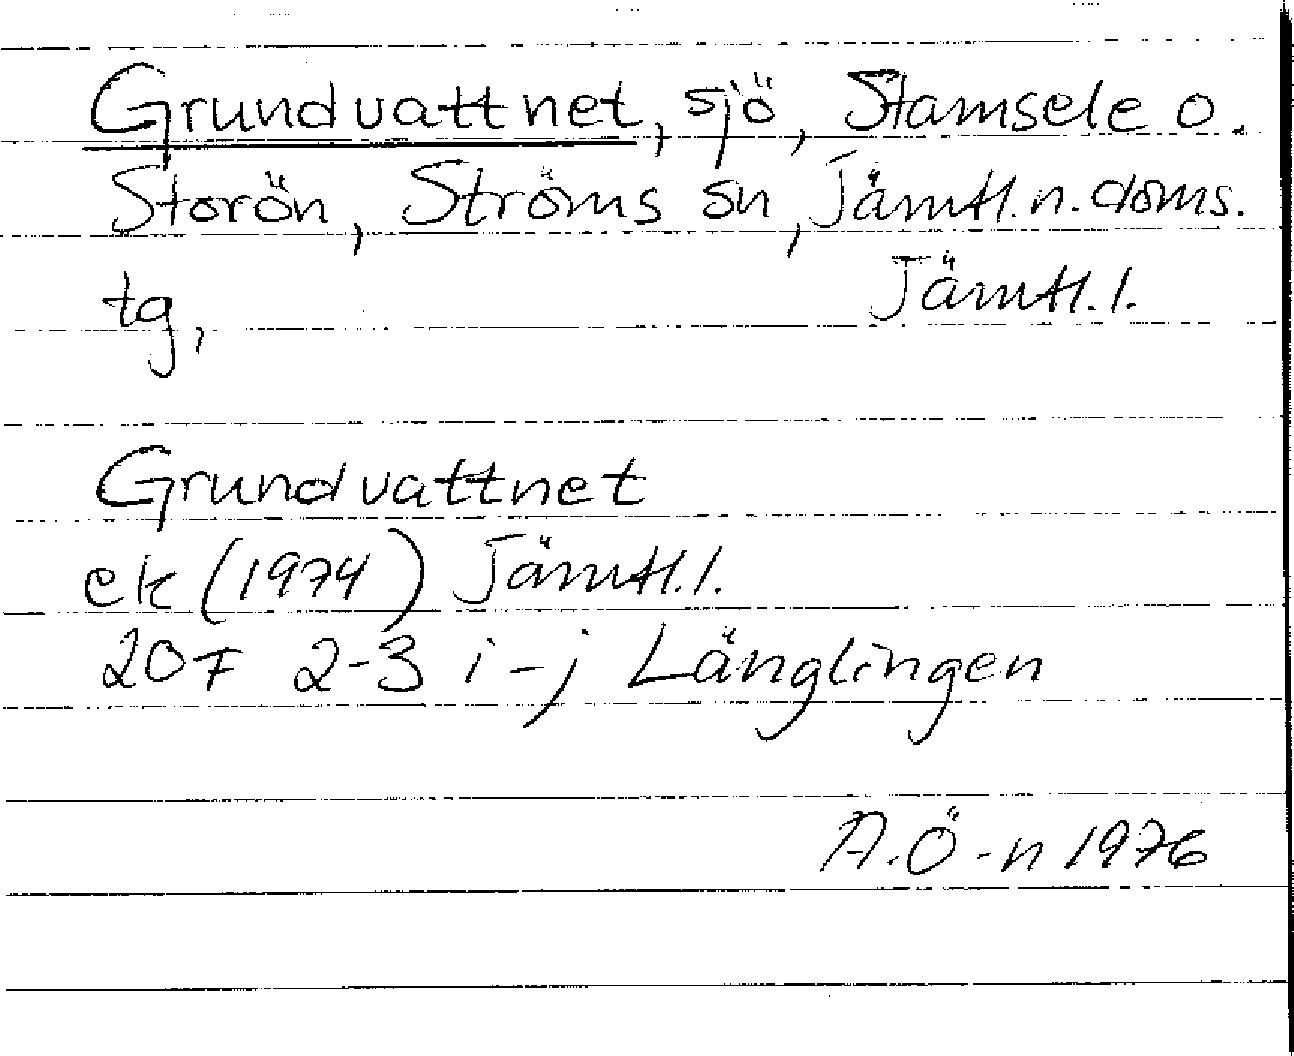 Grundvattnet, sjö, Stamsele o.
Storön, Ströms sn, Jämtl. n. doms.
tg, Jämtl. l.
Grundvattnet
ek (1974) Jämtl. l.
20F 2-3 i-j Länglingen
A. Ö-n 1976